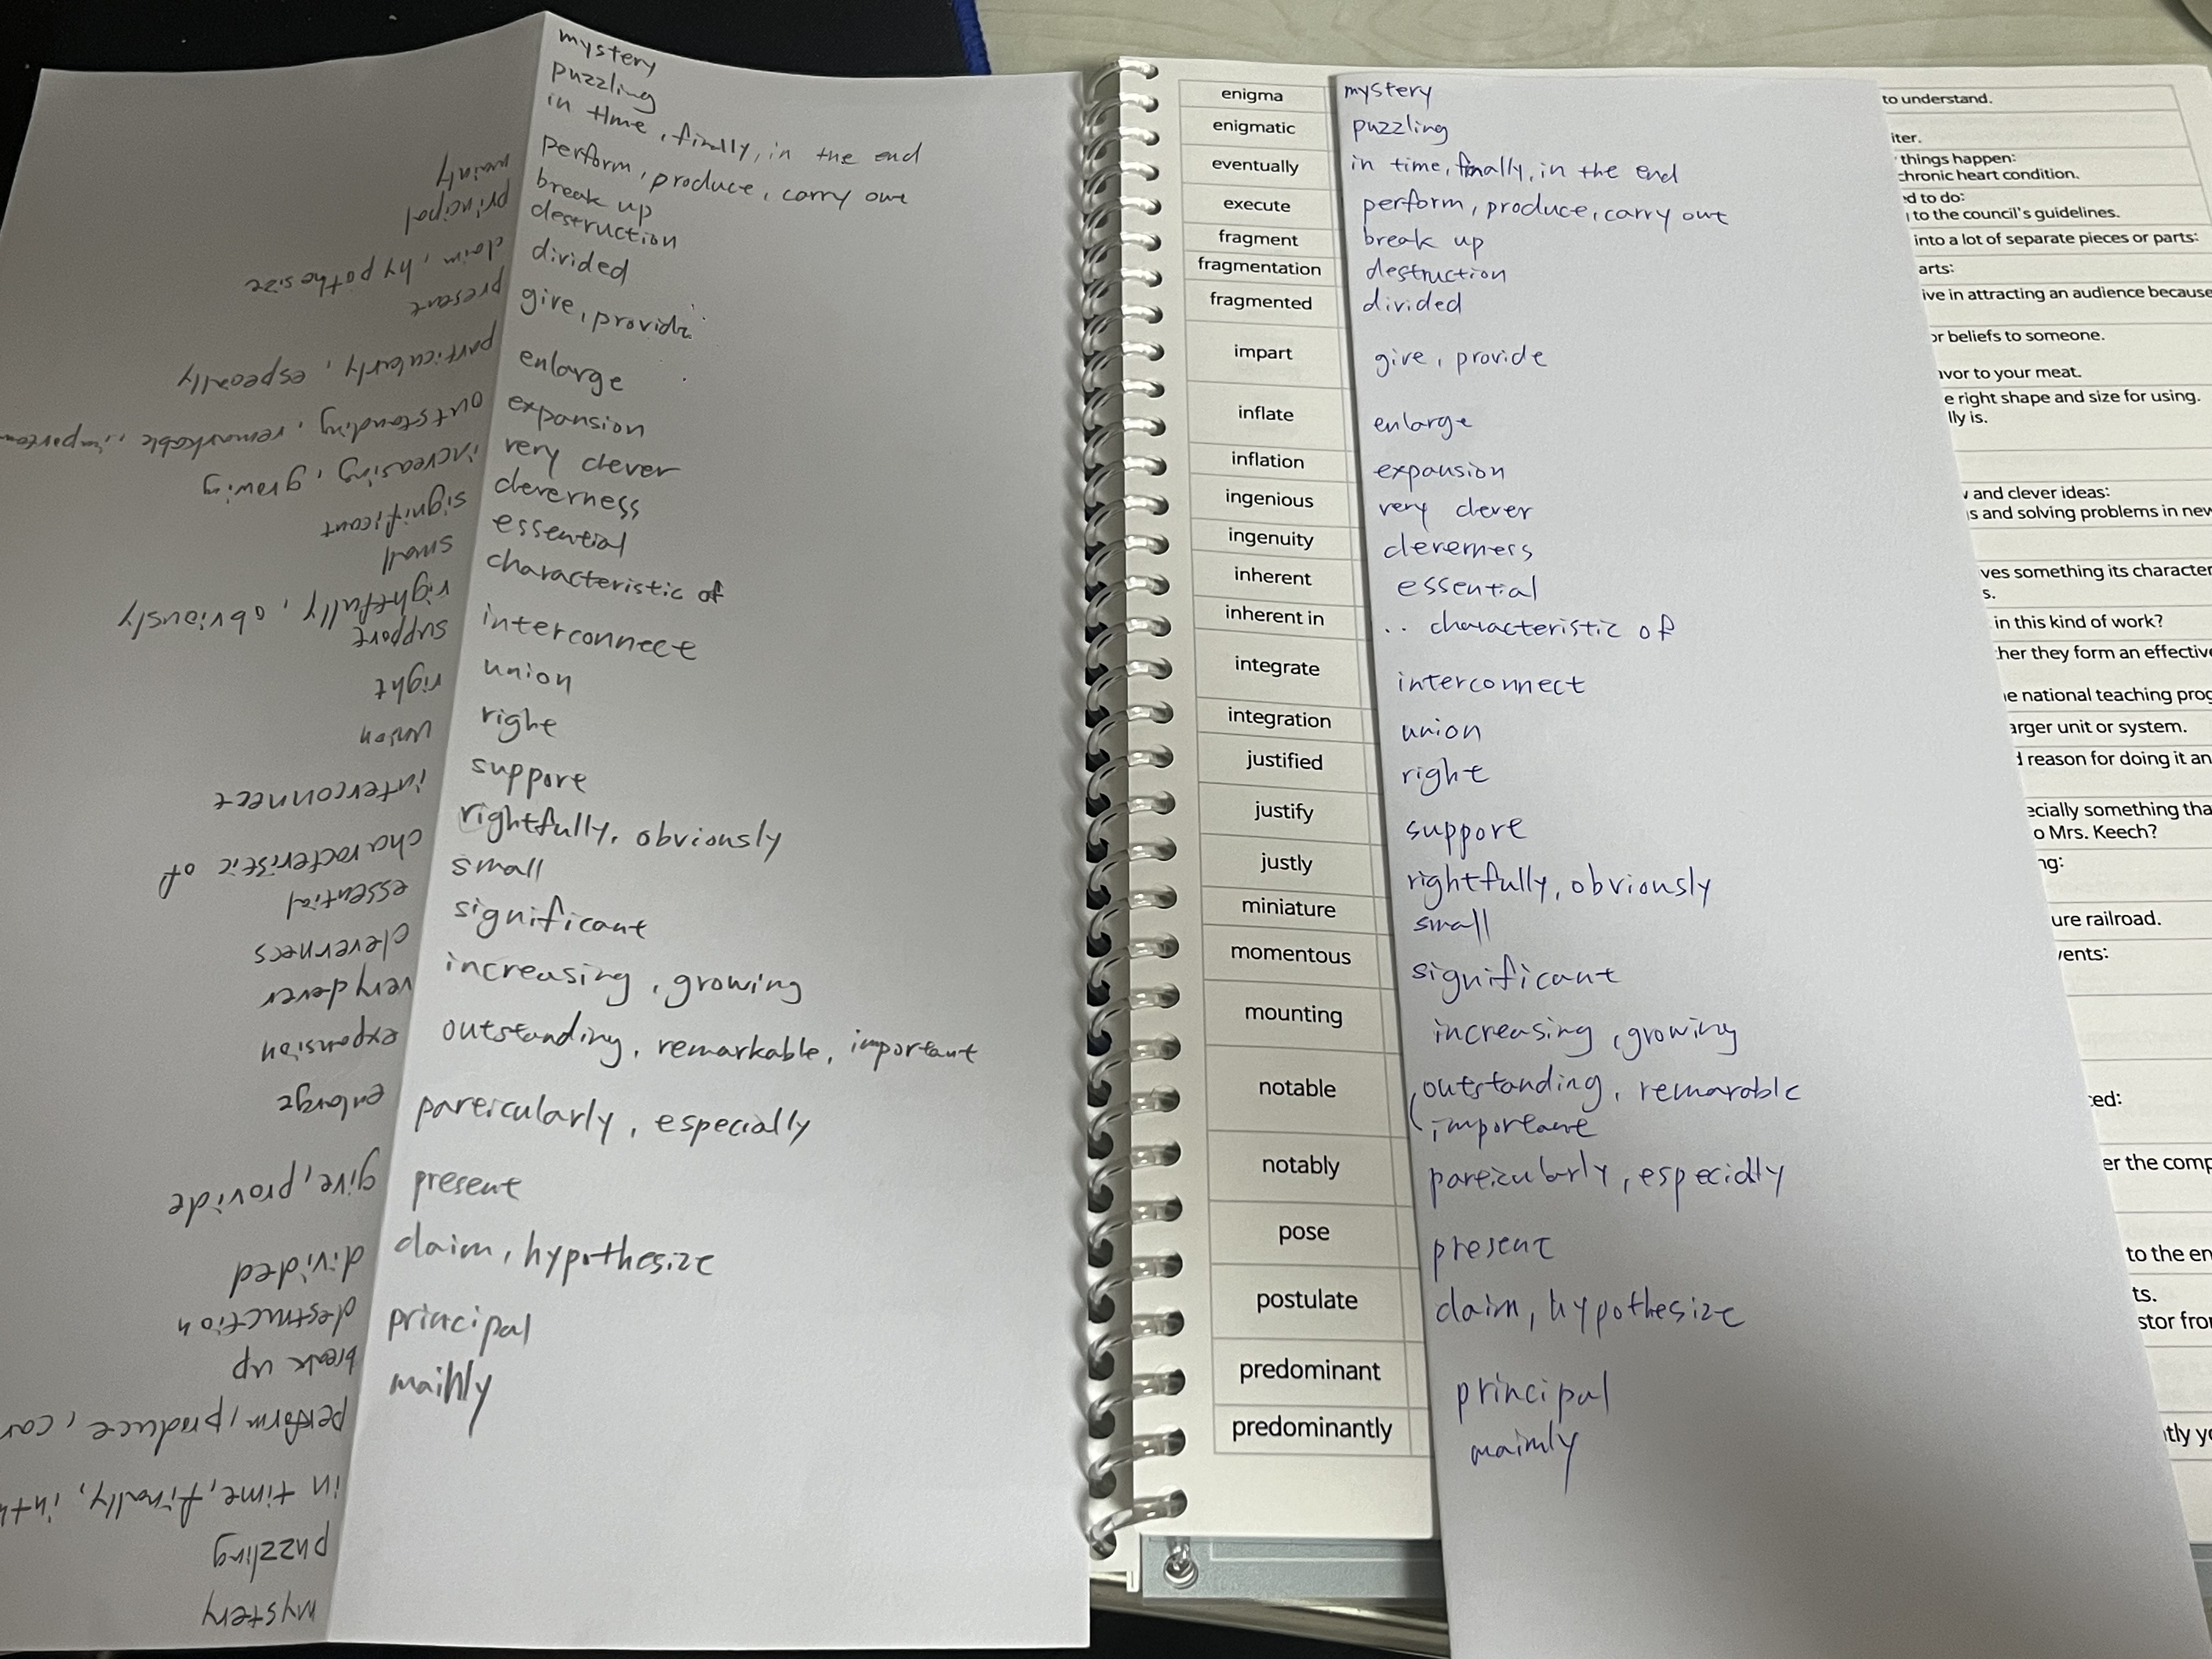 mystery
puzzling
in time, finally, in the end
perform, produce, carry out
break up
destruction
divided
give, provide
enlarge
expansion
very clever
cleverness
essential
characteristic of
interconnect
union
right
support
rightfully, obviously
small
significant
increasing, growing
outstanding, remarkable, important
particularly, especially
present
claim, hypothesize
principal
mainly
mystery
puzzling
in time, finally, in
perform, produce, car
break up
destruction
divided
give, provide
enlarge
expansion
very clever
cleverness
essential
characteristic of
interconnect
union
right
support
rightfully, obviously
small
significant
increasing, growing
outstanding, remarkable, importan
particularly, especially
present
claim, hypothesize
principal
mainly
enigma mystery to understand.
enigmatic puzzling iter.
eventually in time, finally, in the end things happen:
chronic heart condition.
execute perform, produce, carry out ed to do:
to the council's guidelines.
fragment break up into a lot of separate pieces or parts:
fragmentation destruction arts:
fragmented divided ive in attracting an audience because
impart give, provide or beliefs to someone.
avor to your meat.
inflate enlarge e right shape and size for using.
lly is.
inflation expansion
ingenious very clever and clever ideas:
s and solving problems in new
ingenuity cleverness
inherent essential ves something its character
s.
inherent in .. characteristic of in this kind of work?
integrate interconnect ther they form an effective
e national teaching prog
integration union arger unit or system.
justified right d reason for doing it an
justify support ecially something tha
o Mrs. Keech?
justly rightfully, obviously ng:
miniature small ure railroad.
momentous significant vents:
mounting increasing, growing
notable outstanding, remarable ced:
, important
notably particularly, especially er the comp
pose present to the en
postulate claim, hypothesize ts.
stor fro
predominant principal
predominantly mainly tly yo